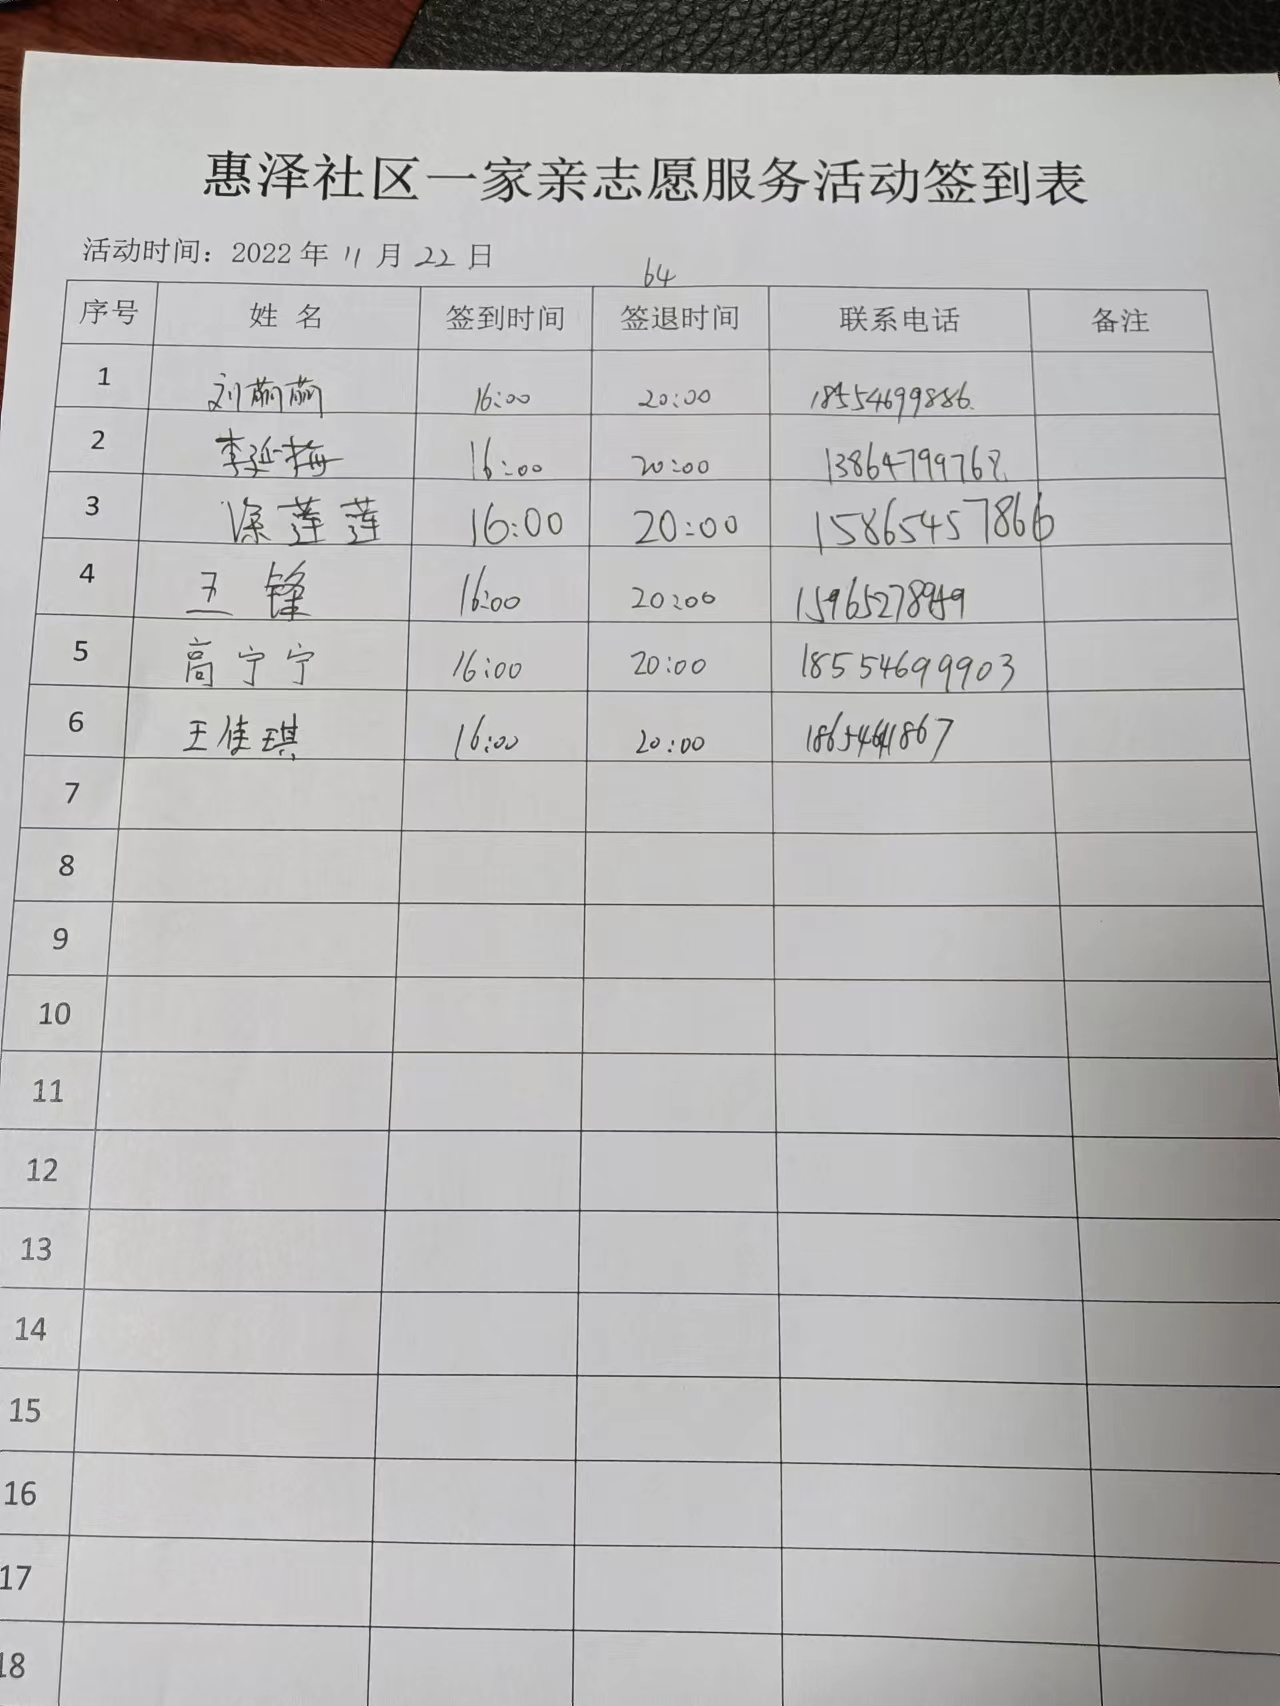 惠泽社区一家亲志愿服务活动签到表
活动时间：2022年11月22日
64
序号 姓 名 签到时间 签退时间 联系电话 备注
1 刘萠萠 16:00 20:00 18554699886
2 李延梅 16:00 20:00 13864799768
3 莲莲 16:00 20:00 15865457866
4 王 锋 16:00 20:00
5 高宁宁 16:00 20:00 18554699903
6 王佳琪 16:00 20:00
7
8
9
10
11
12
13
14
15
16
17
18